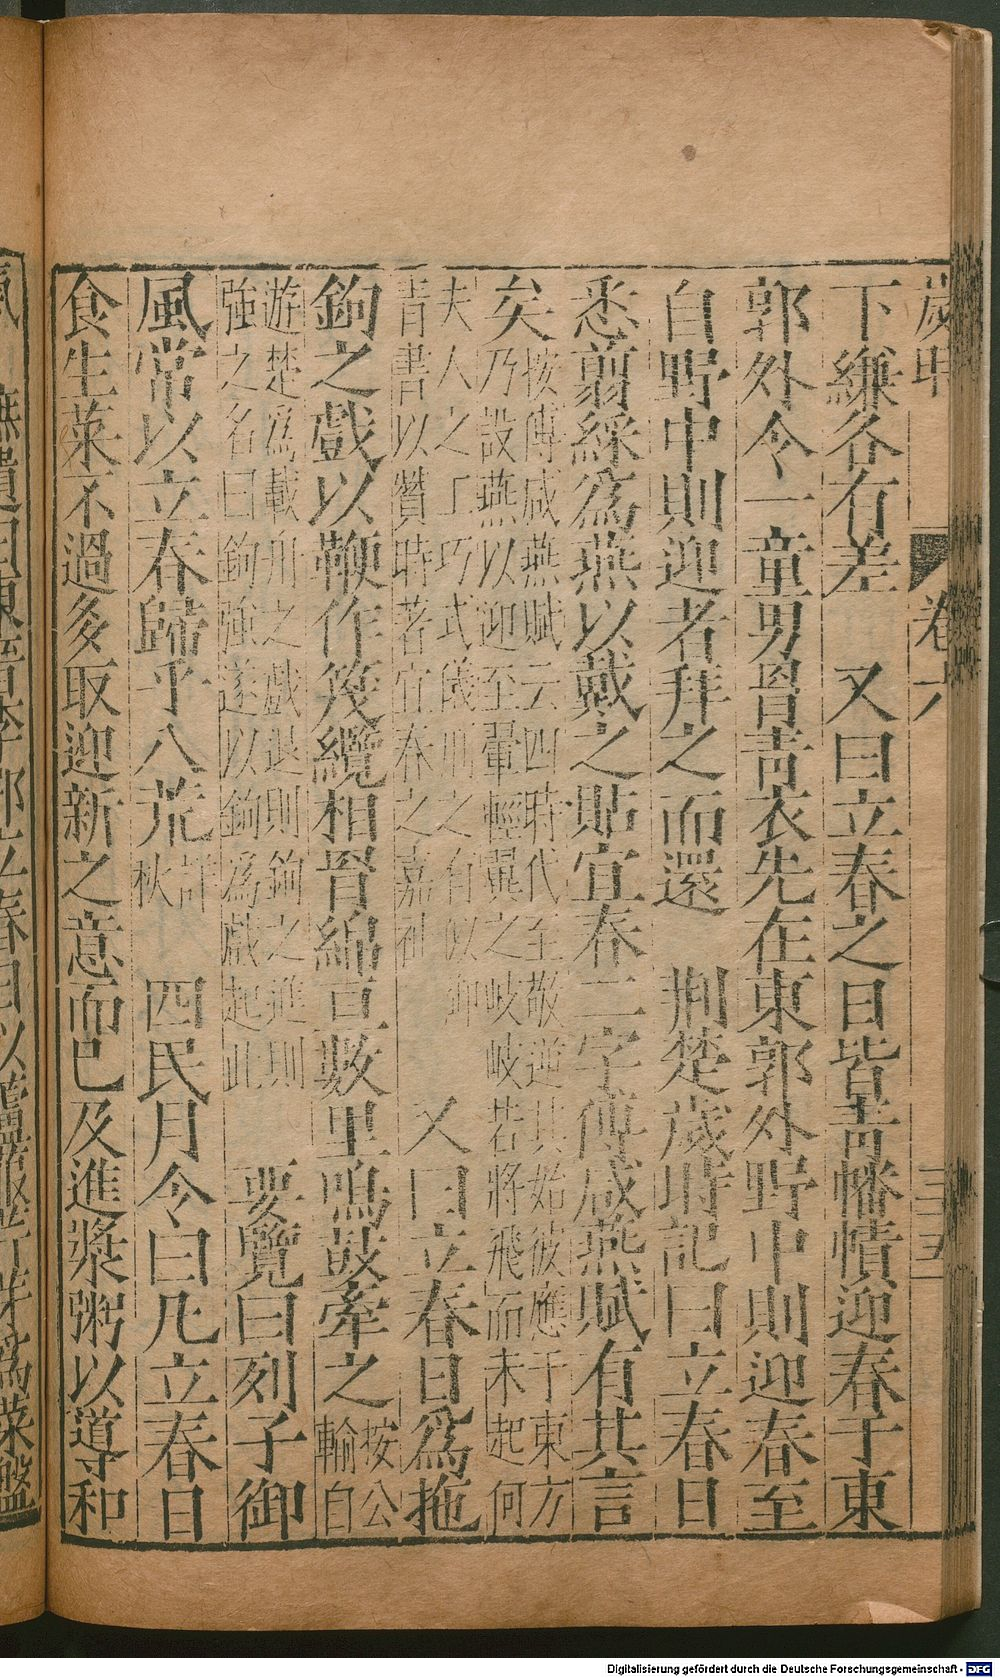 歲時　卷六　三五
下縑各有差　又曰立春之日皆青幡幘迎春于東
郭外令一童男冒青衣先在東郭外野中則迎春至
自野中則迎者拜之而還　荆楚歲時記曰立春日
悉翦綵爲燕以戴之貼宜春二字傅咸燕賦有其言
矣按傅咸燕賦云四時代至敬逆其始彼應于東方
乃設燕以迎至翬輕翼之岐岐若將飛而未起何
夫人之工巧式儀刑之有似御
青書以贊時著宜春之嘉祉　又曰立春日爲拖
鉤之戲以鞭作篾纜相罥綿亘數里鳴鼓牽之按公
輸自
遊楚爲載舟之戲退則鉤之進則
強之名曰鉤強遂以鉤爲戲起此　要覽曰列子御
風常以立春歸乎八荒詳
秋　四民月令曰凡立春日
食生菜不過多取迎新之意而已及進漿粥以導和
蘆菔芽爲菜盤
Digitalisierung gefördert durch die Deutsche Forschungsgemeinschaft - DFG